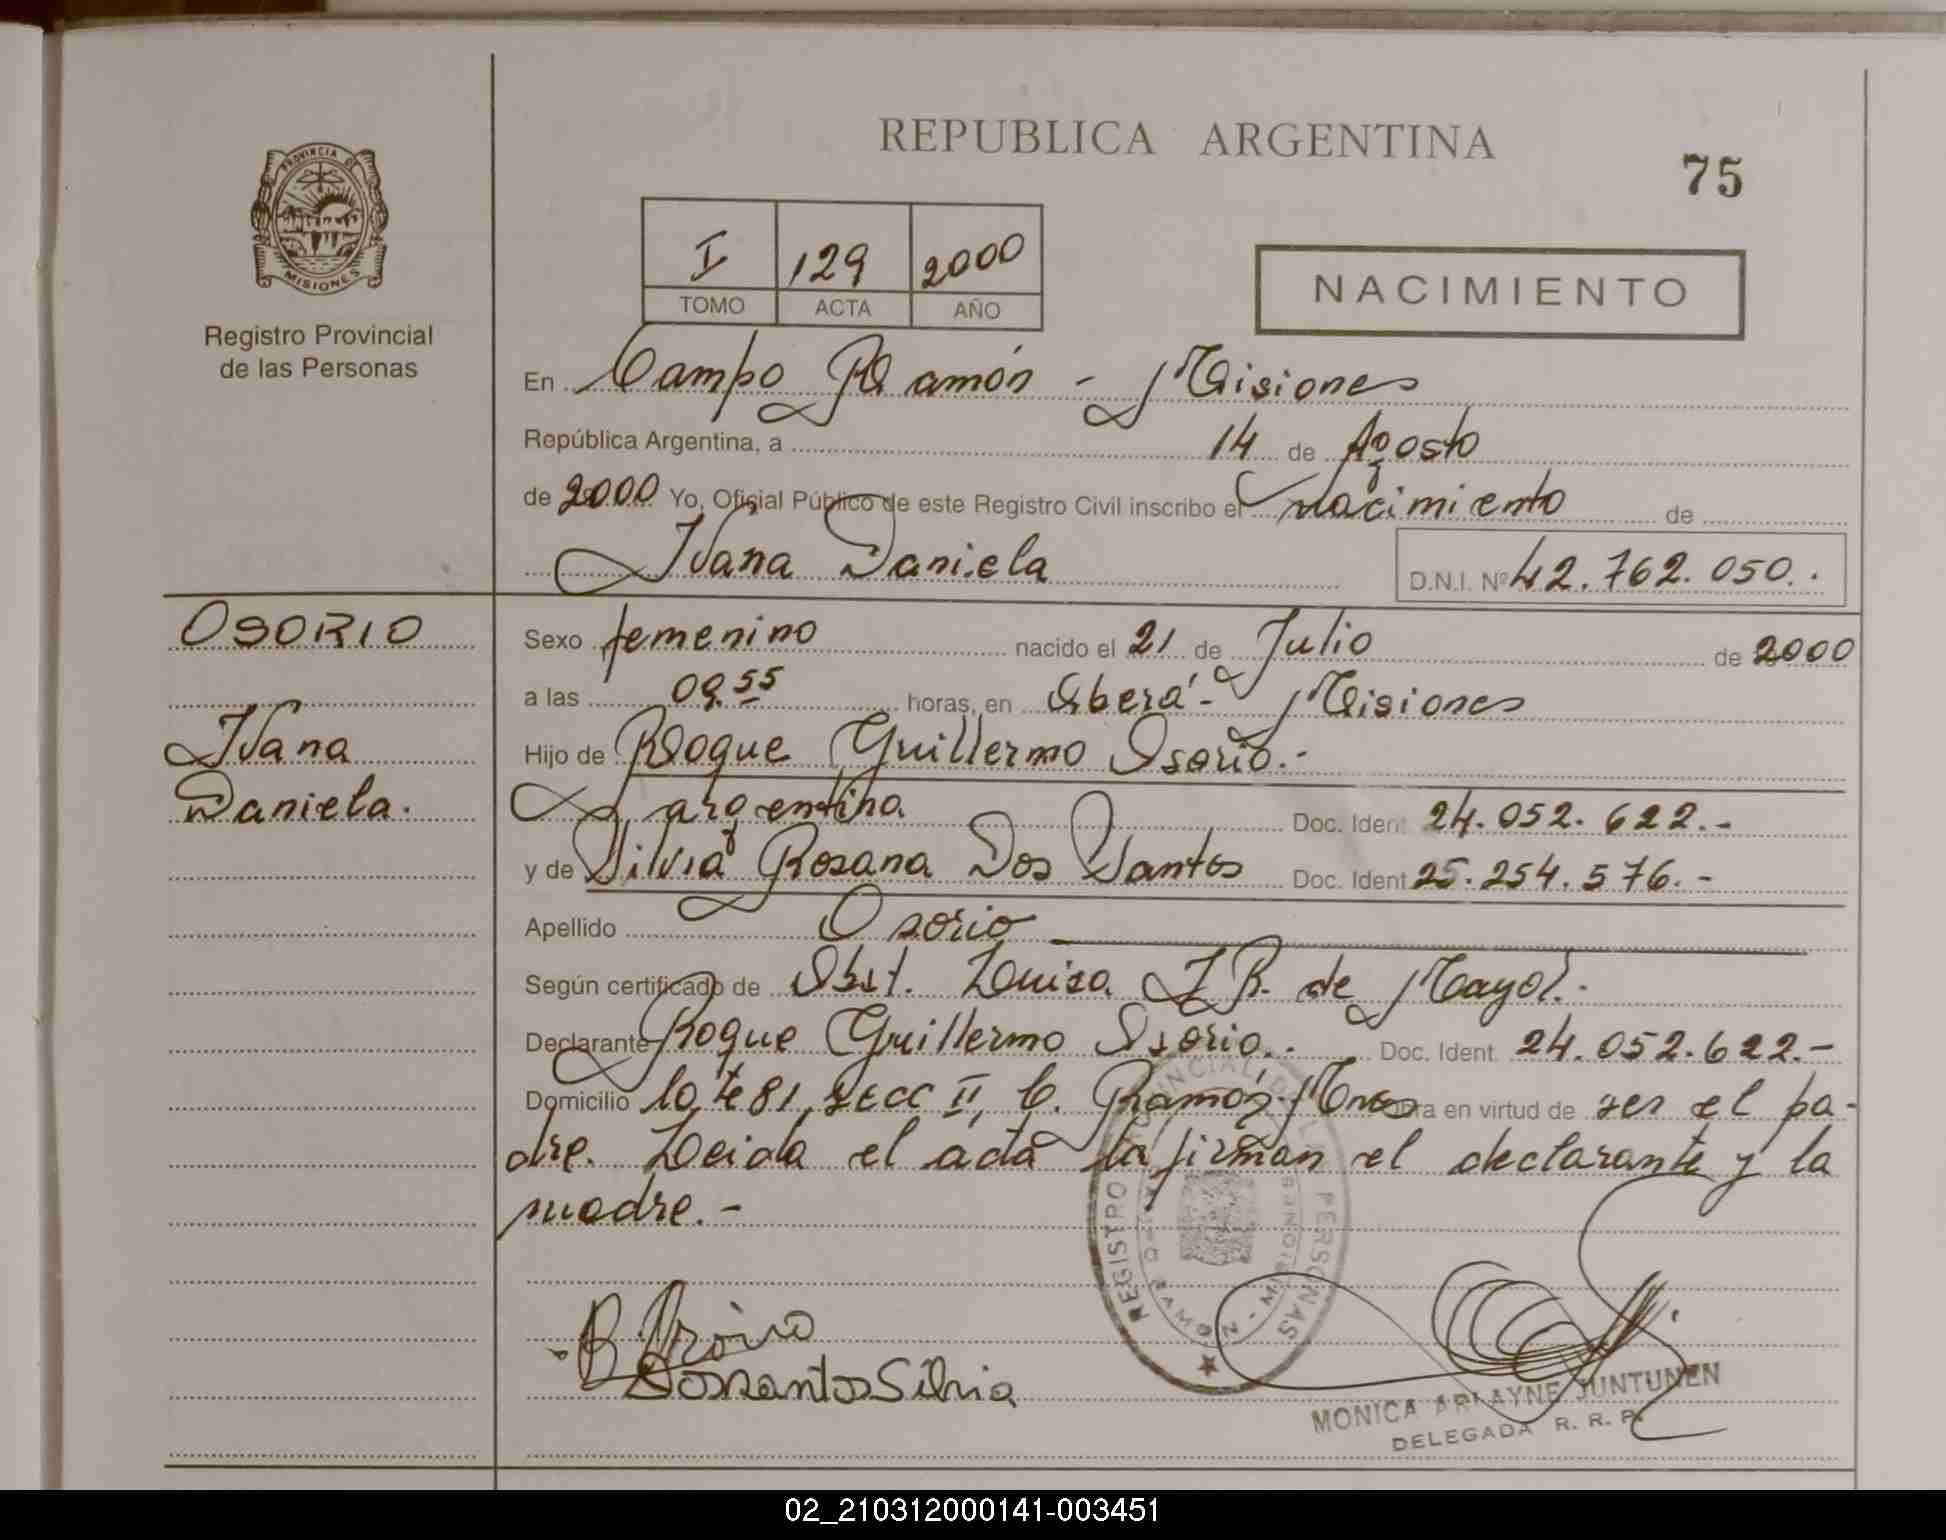 REPUBLICA ARGENTINA
75
PROVINCIA DE
MISIONES
Registro Provincial
de las Personas
I 129 2000
TOMO ACTA AÑO
NACIMIENTO
En Campo Ramón - Misiones
República Argentina, a 14 de Agosto
de 2000 Yo, Oficial Público de este Registro Civil inscribo el nacimiento de
Ivana Daniela D.N.I. Nº 42.762.050.
OSORIO
Ivana
Daniela.
Sexo femenino nacido el 21 de Julio de 2000
a las 09.55 horas, en Oberá - Misiones
Hijo de Roque Guillermo Osorio.-
argentina Doc. Ident 24.052.622.-
y de Silvia Rosana Dos Santos Doc. Ident 25.254.576.-
Apellido Osorio
Según certificado de Obst. Luisa J.B. de Mayol.-
Declarante Roque Guillermo Osorio.. Doc. Ident. 24.052.622.-
Domicilio lote 81, secc II, C. Ramón- Mnes obra en virtud de ser el pa-
dre. Leida el acta la firman el declarante y la
madre.-
REGISTRO PROVINCIAL DE LAS PERSONAS
RAMON - MISIONES
Dossantos Silvia
MONICA ARLAYNE JUNTUNEN
DELEGADA R. R. P.
02_210312000141-003451